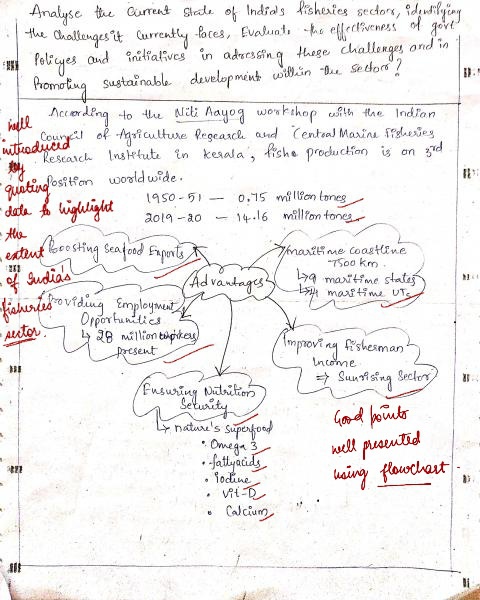 Analyse the Current State of India's fisheries sector, identifying
the Challenges it Currently faces, Evaluate the effectiveness of govt
Policyes and initiatives in adressing these challenges and in
Promoting sustainable development within the Sector?
According to the Niti Aayog workshop with the Indian
Council of Agriculture Research and Central Marine Fisheries
Research Institute in Kerala, fishe production is on 3rd
Position worldwide.
1950-51 — 0.75 million tones
2019-20 — 14.16 million tones
well
introduced
by
quoting
data to highlight
the
extent
of India's
fisheries
sector.
Boosting Seafood Exports
Advantages
maritime coastline
7500 km.
↳ 9 maritime states
↳ 4 maritime UTs
Providing Employment
Opportunities
↳ 28 million workers
present
Improving fisherman
Income
⇒ Sunrising Sector
Ensuring Nutrition
Security
↳ nature's superfood
• Omega 3
• fattyacids
• Iodine
• Vit-D
• Calcium
Good points
well presented
using flowchart